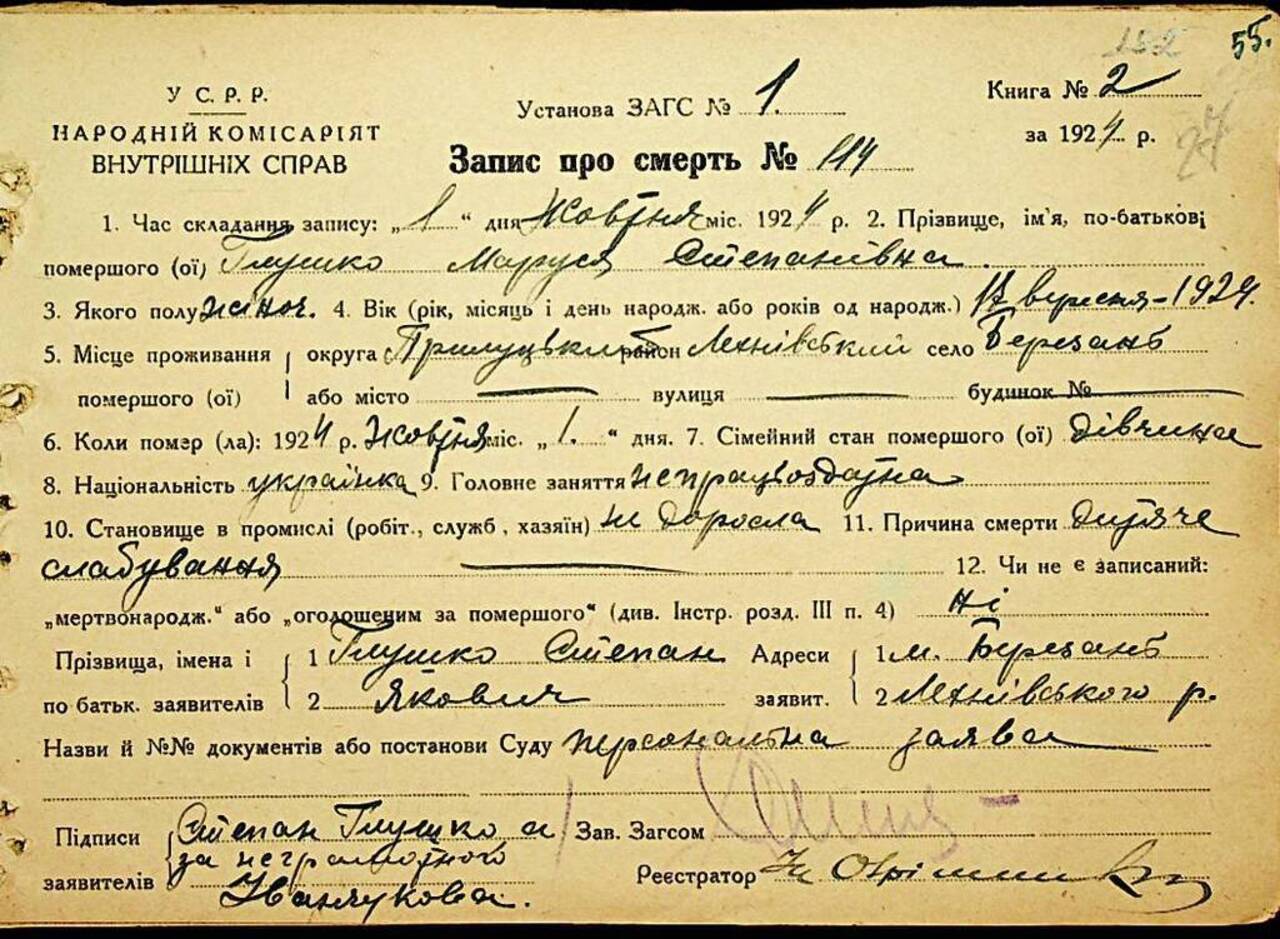 152 55.
У С. Р. Р.
НАРОДНІЙ КОМІСАРІЯТ
ВНУТРІШНІХ СПРАВ
Установа ЗАГС № 1.
Книга № 2
за 1924 р.
Запис про смерть № 114
1. Час складання запису: „1“ дня Жовтня міс. 1924 р. 2. Прізвище, ім'я, по-батькові
помершого (ої) Глушко Маруся Степанівна
3. Якого полу жіноч. 4. Вік (рік, місяць і день народж. або років од народж.) 17 вересня - 1924.
5. Місце проживання помершого (ої) округа Прилуцький район село Березань
або місто — вулиця — будинок № —
6. Коли помер (ла): 1924 р. Жовтня міс. „1.“ дня. 7. Сімейний стан помершого (ої) дівчина
8. Національність українка 9. Головне заняття непрацьоздатна
10. Становище в промислі (робіт., служб, хазяїн) не доросла 11. Причина смерти дитяче
слабування — 12. Чи не є записаний:
„мертвонародж.“ або „оголошеним за помершого“ (див. Інстр. розд. III п. 4) ні
Прізвища, імена і по батьк. заявителів 1 Глушко Степан Адреси заявит. 1 м. Березань
2 Якович 2 р.
Назви й №№ документів або постанови Суду персональна заява
Підписи заявителів Степан Глушко а Зав. Загсом
за неграмотного Реєстратор
Іванчукова.